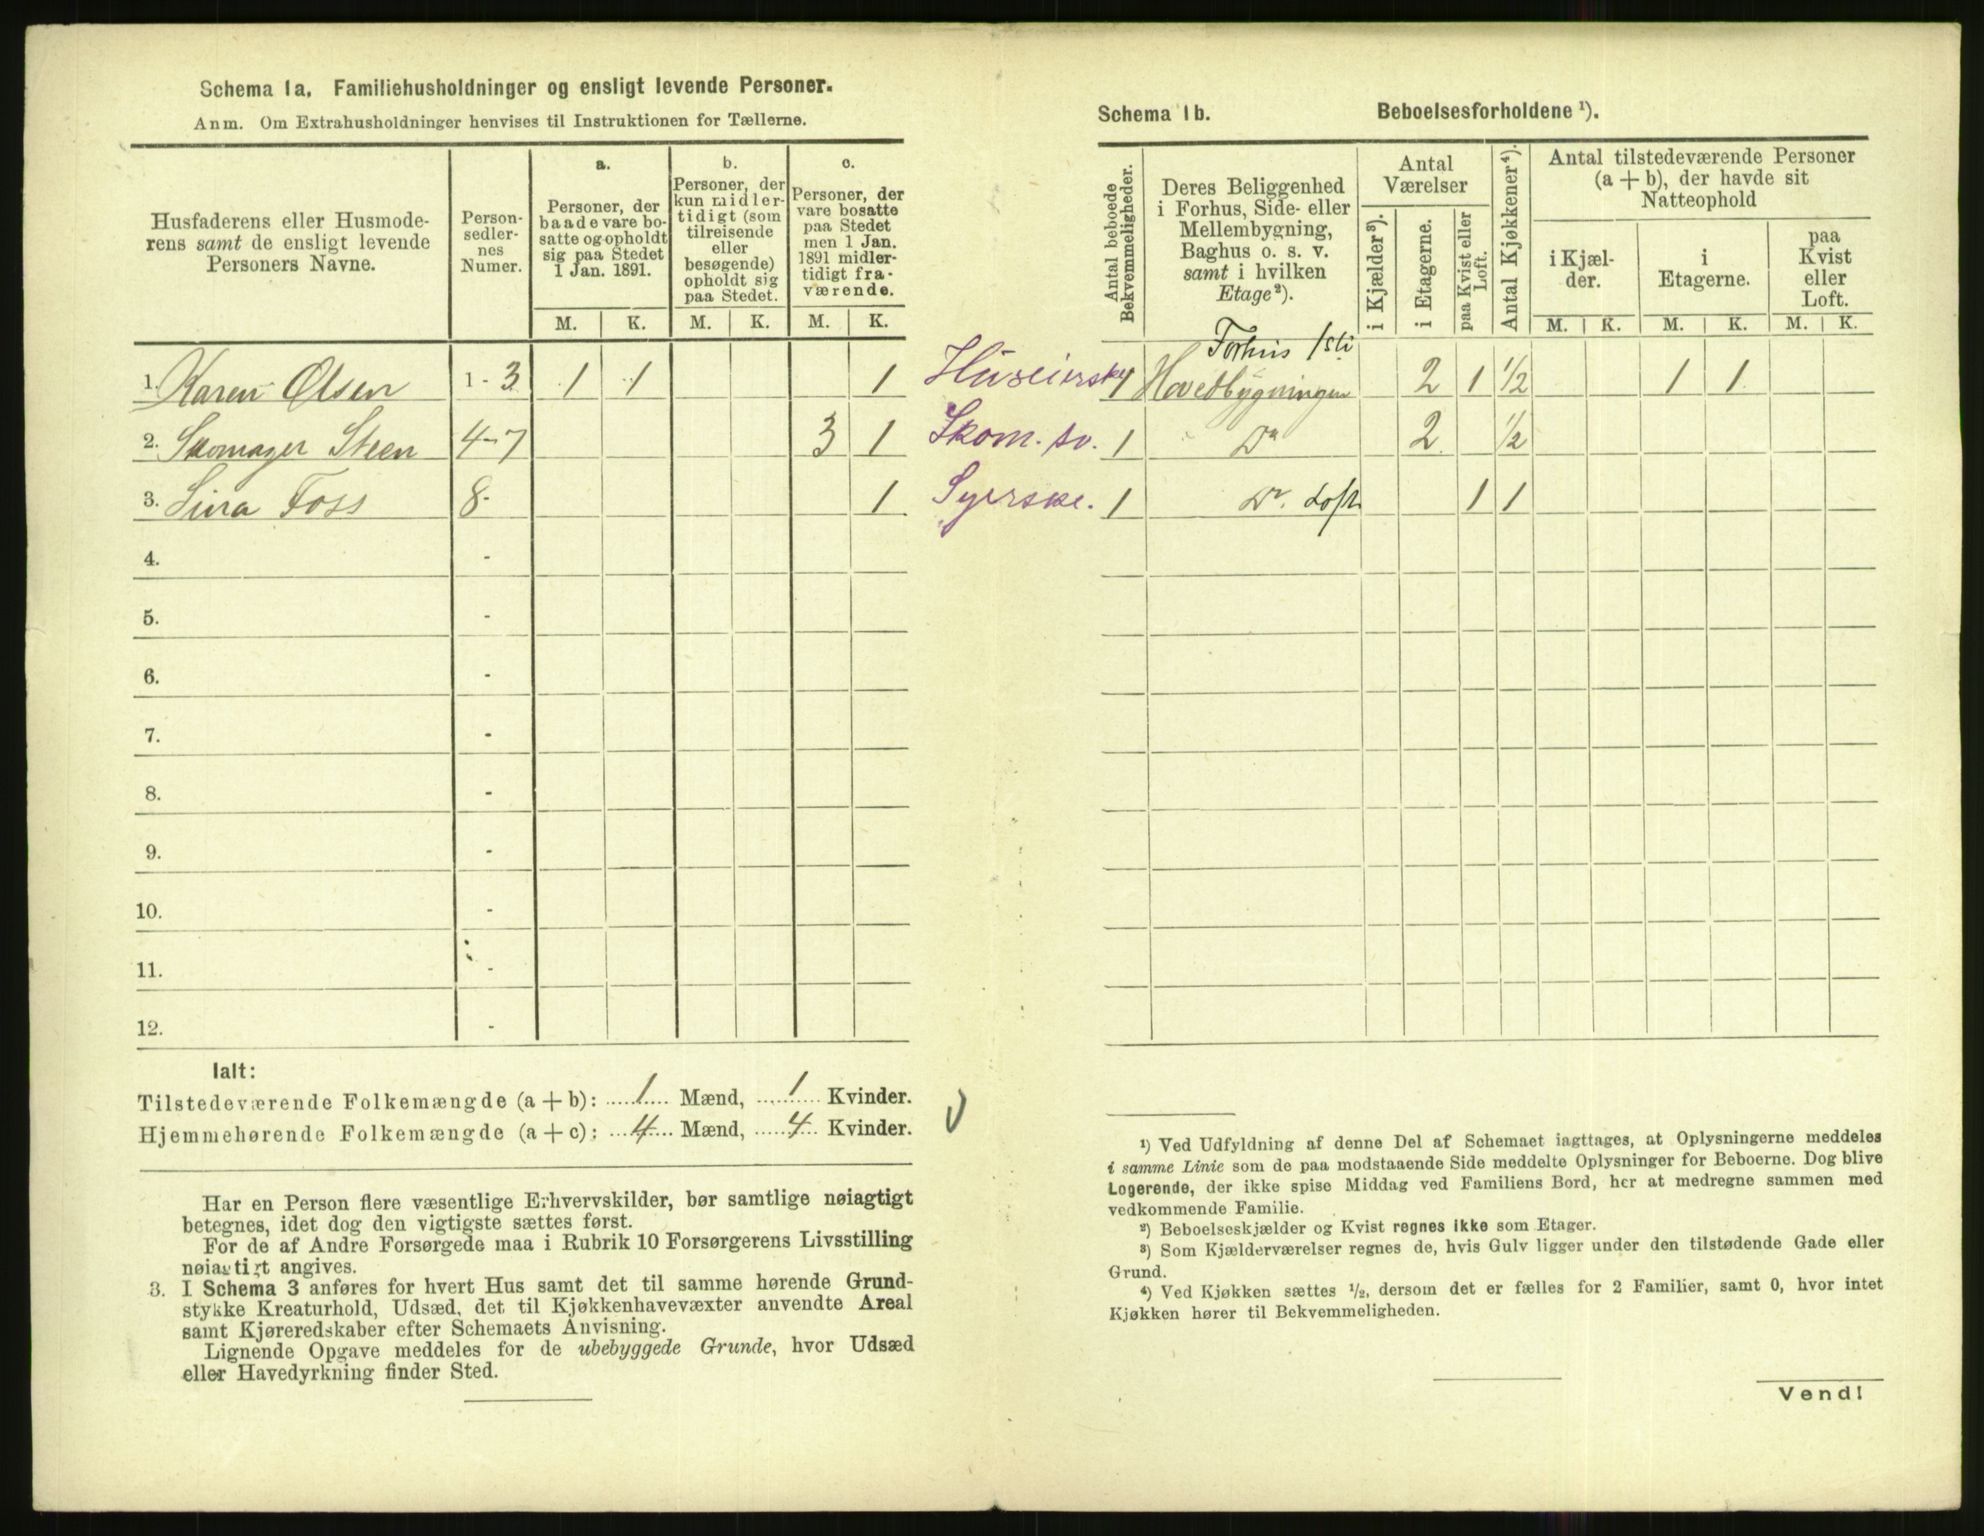 Schema 1a. Familiehusholdninger og ensligt levende Personer.
Anm. Om Extrahusholdninger henvises til Instruktionen for Tællerne.
Husfaderens eller Husmode-
rens samt de ensligt levende
Personers Navne.
Person-
sedler-
nes
Numer.
a.
Personer, der
baade vare bo-
satte og opholdt
sig paa Stedet
1 Jan. 1891.
b.
Personer, der
kun midler-
tidigt (som
tilreisende
eller
besøgende)
opholdt sig
paa Stedet.
c.
Personer, der
vare bosatte
paa Stedet
men 1 Jan.
1891 midler-
tidigt fra-
værende.
M. K. M. K. M. K.
1. Karen Olsen 1-3 1 1 1
2. Skomager Steen 4-7 3 1
3. Lina Foss 8- 1
4. -
5. -
6. -
7. -
8. -
9. -
10. -
11. -
12. -
Ialt:
Tilstedeværende Folkemængde (a + b): 1 Mænd, 1 Kvinder.
Hjemmehørende Folkemængde (a + c): 4 Mænd, 4 Kvinder.
Har en Person flere væsentlige Erhvervskilder, bør samtlige nøiagtigt
betegnes, idet dog den vigtigste sættes først.
For de af Andre Forsørgede maa i Rubrik 10 Forsørgerens Livsstilling
nøiagtigt angives.
3. I Schema 3 anføres for hvert Hus samt det til samme hørende Grund-
stykke Kreaturhold, Udsæd, det til Kjøkkenhavevæxter anvendte Areal
samt Kjøreredskaber efter Schemaets Anvisning.
Lignende Opgave meddeles for de ubebyggede Grunde, hvor Udsæd
eller Havedyrkning finder Sted.
Schema 1b. Beboelsesforholdene ¹).
Antal beboede
Bekvemmeligheder.
Deres Beliggenhed
i Forhus, Side- eller
Mellembygning,
Baghus o. s. v.
samt i hvilken
Etage²).
Antal
Værelser
i Kjælder³).
i Etagerne.
paa Kvist eller
Loft.
Antal Kjøkkener⁴).
Antal tilstedeværende Personer
(a + b), der havde sit
Natteophold
i Kjæl-
der.
i
Etagerne.
paa
Kvist
eller
Loft.
M. K. M. K. M. K.
Forhus 1ste
Huseierske 1 Hovedbygningen 2 1 1/2 1 1
Skom. sv. 1 Do 2 1/2
Syerske. 1 Do. Loft 1 1
¹) Ved Udfyldning af denne Del af Schemaet iagttages, at Oplysningerne meddeles
i samme Linie som de paa modstaaende Side meddelte Oplysninger for Beboerne. Dog blive
Logerende, der ikke spise Middag ved Familiens Bord, her at medregne sammen med
vedkommende Familie.
²) Beboelseskjælder og Kvist regnes ikke som Etager.
³) Som Kjælderværelser regnes de, hvis Gulv ligger under den tilstødende Gade eller
Grund.
⁴) Ved Kjøkken sættes ½, dersom det er fælles for 2 Familier, samt 0, hvor intet
Kjøkken hører til Bekvemmeligheden.
Vend!